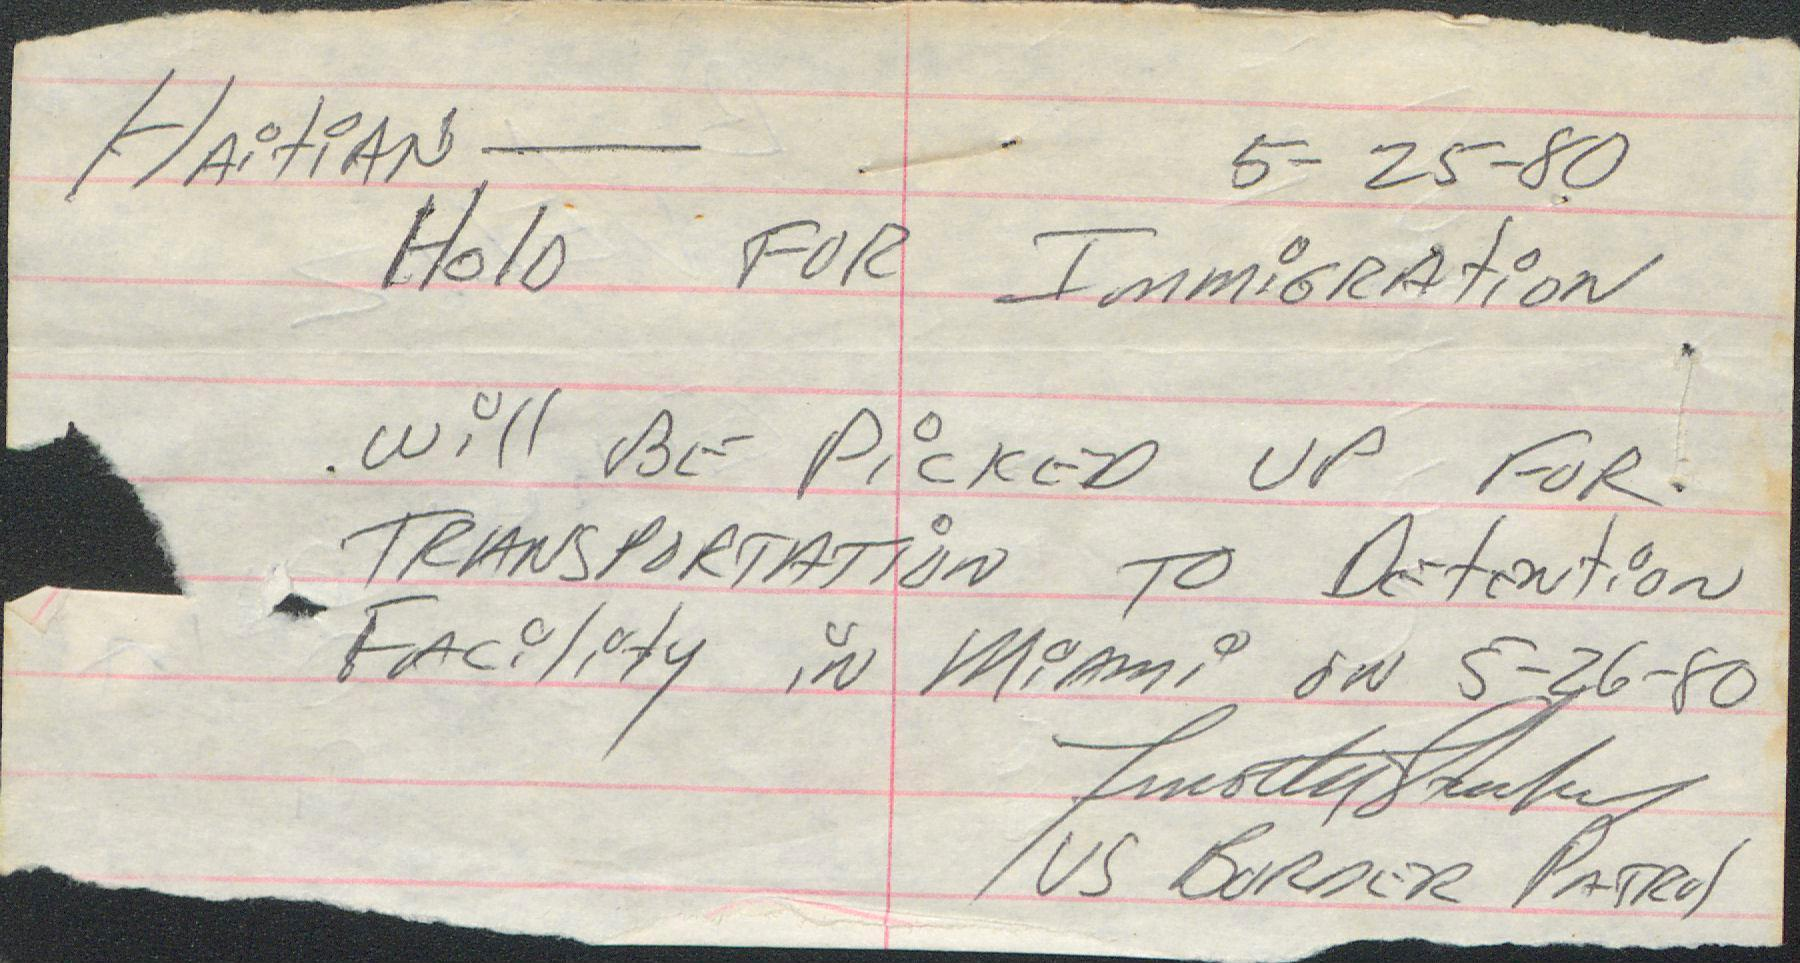 HAitiAN —— 5-25-80
Hold FOR ImmiGRAtiON
will BE PickED UP FOR
TRANSPORTATiON TO DEtention
FAcility iN MiAmi ON 5-26-80
Timothy
US BORDER PATROl